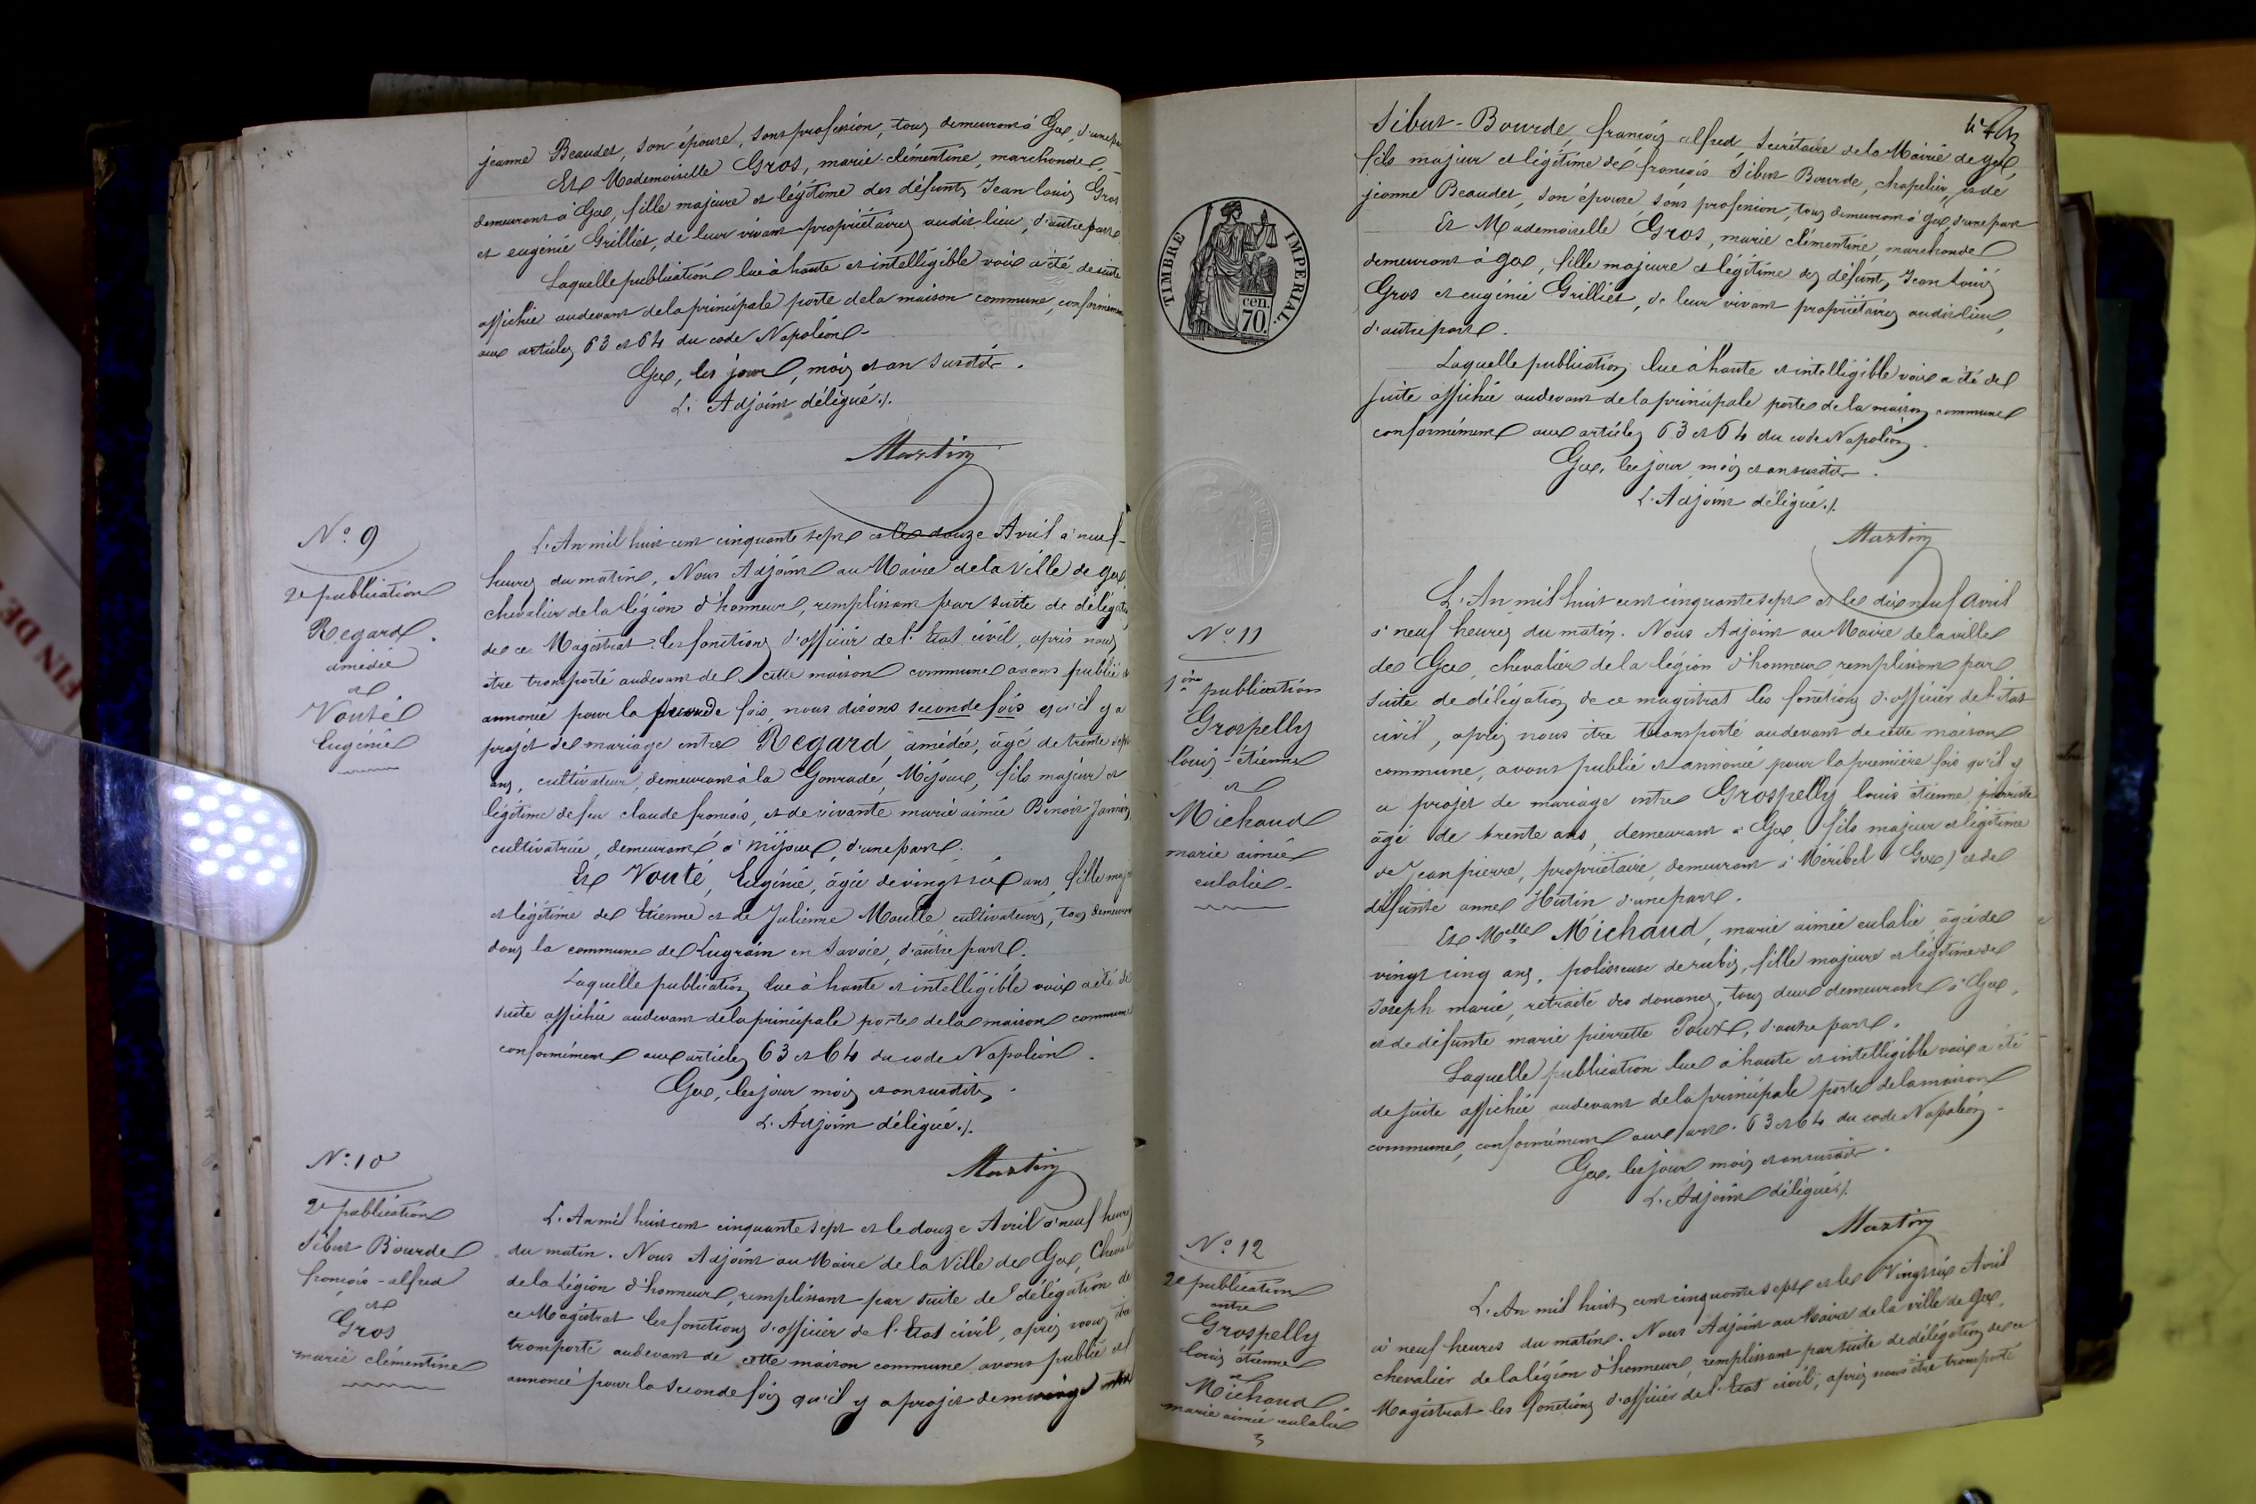 jeanne Beaudet, son épouse, sans profession, tous demeurant à Gex, d'une part
Et Mademoiselle Gros, marie clémentine, marchande,
demeurant à Gex, fille majeure et légitime des défunts Jean louis Gros
et eugénie Grilliet, de leur vivant propriétaires audit lieu, d'autre part
Laquelle publication lue à haute et intelligible voix a été de suite
affichée audevant de la principale porte de la maison commune, conformément
aux articles 63 et 64 du code Napoléon.
Gex, les jour, mois et an susdits.
L'Adjoint délégué./.
Martin
N° 9
2e publication
Regard
amédée
et
Vouté
Eugénie
L'An mil huit cent cinquante sept et le douze Avril à neuf
heures du matin, Nous Adjoint au Maire de la Ville de Gex,
chevalier de la légion d'honneur, remplissant par suite de délégation
de ce Magistrat les fonctions d'officier de l'Etat civil, après nous
être transporté audevant de cette maison commune avons publié et
annoncé pour la fois, nous disons seconde fois qu'il y a
projet de mariage entre Regard, amédée, âgé de trente sept
ans, cultivateur, demeurant à la Mijoux, fils majeur et
légitime de feu claude françois, et de vivante marie aimée Benoit Jannin
cultivatrice, demeurant à Mijoux, d'une part,
Et Vouté, Eugénie, âgée de vingt six ans, fille maj
et légitime de Etienne et de Julienne Moulle, cultivateurs, tous demeurant
dans la commune de Lugrain en Savoie, d'autre part.
Laquelle publication lue à haute et intelligible voix a été de
suite affichée audevant de la principale porte de la maison commune
conformément aux articles 63 et 64 du code Napoléon.
Gex, les jour mois et an susdits.
L'Adjoint délégué./.
Martin
N° 10
2e publication
Sibut Bourde
françois-alfred
et
Gros
marie clémentine
L'An mil huit cent cinquante sept et le douze Avril à neuf heures
du matin. Nous Adjoint au Maire de la Ville de Gex, Cheval
de la Légion d'honneur, remplissant par suite de délégation de
ce Magistrat les fonctions d'officier de l'Etat civil, après nous être
transporté audevant de cette maison commune avons publié et
annoncé pour la seconde fois qu'il y a projet de mariage entre
Sibut-Bourde, françois alfred, Secrétaire de la Mairie de Gex,
fils majeur et légitime de françois Sibut Bourde, chapelier, et de
jeanne Beaudet, son épouse, sans profession, tous demeurant à Gex, d'une part
Et Mademoiselle Gros, marie clémentine, marchande
demeurant à Gex, fille majeure et légitime des défunts Jean Louis
Gros et eugénie Grilliet, de leur vivant propriétaires audit lieu,
d'autre part.
Laquelle publication lue à haute et intelligible voix a été de
suite affichée audevant de la principale porte de la maison commune
conformément aux articles 63 et 64 du code Napoléon.
Gex, les jour mois et an susdits.
L'Adjoint délégué./.
Martin
TIMBRE IMPERIAL.
cen.
70.
N° 11
1ère publication
Grospelly
Louis-Étienne
et
Michaud
marie aimée
eulalie.
L'An mil huit cent cinquante sept et le dix neuf avril
à neuf heures du matin. Nous Adjoint au Maire de la ville
de Gex, chevalier de la légion d'honneur, remplissant par
suite de délégation de ce magistrat les fonctions d'officier de l'état
civil, après nous être transporté audevant de cette maison
commune, avons publié et annoncé pour la première fois qu'il y
a projet de mariage entre Grospelly louis étienne, pierriste
âgé de trente ans, demeurant à Gex, fils majeur et légitime
de Jean pierre, propriétaire, demeurant à Méribel (Gex) et de
défunte anne Hutin d'une part.
Et Melle Michaud, marie aimée eulalie, âgée de
vingt cinq ans, polisseuse de rubis, fille majeure et légitime de
Joseph marie, retraité des douanes, tous deux demeurant à Gex,
et de défunte marie pierrette Poux, d'autre part.
Laquelle publication lue à haute et intelligible voix a été
de suite affichée audevant de la principale porte de la maison
commune, conformément aux art. 63 et 64 du code Napoléon.
Gex, les jour mois et an susdits.
L'Adjoint délégué./.
Martin
N° 12
2e publication
entre
Grospelly
louis étienne
et
Michaud
marie aimée eulalie
L'An mil huit cent cinquante sept et le Vingt six Avril
à neuf heures du matin. Nous Adjoint au Maire de la ville de Gex,
chevalier de la légion d'honneur, remplissant par suite de délégation de ce
Magistrat les fonctions d'officier de l'Etat civil, après nous être transporté